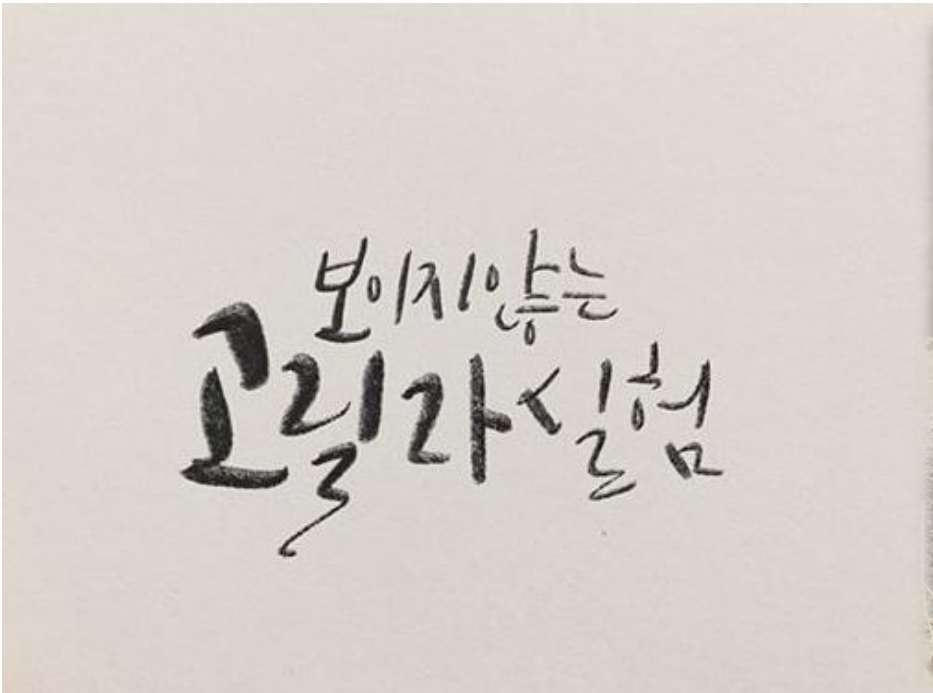 보이지않는
고릴라실험